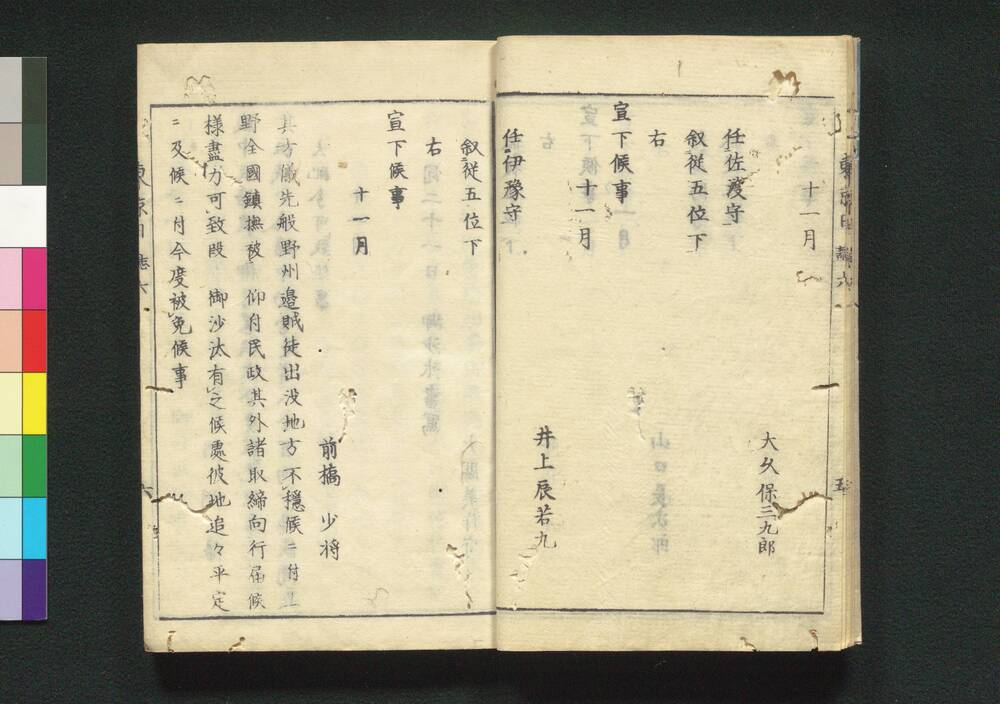 東京日誌六
五
十一月
大久保三九郎
任佐渡守
叙従五位下
右
宣下候事
十一月
井上辰若丸
任伊豫守
叙従五位下
右
宣下候事
十一月
前橋少将
其方儀先般野州邉賊徒出没地方不穏候ニ付上
野全國鎮撫被 仰付民政其外諸取締向行届候
様盡力可致段 御沙汰有之候處彼地追々平定
ニ及候ニ付今度被免候事
東京日誌六
六